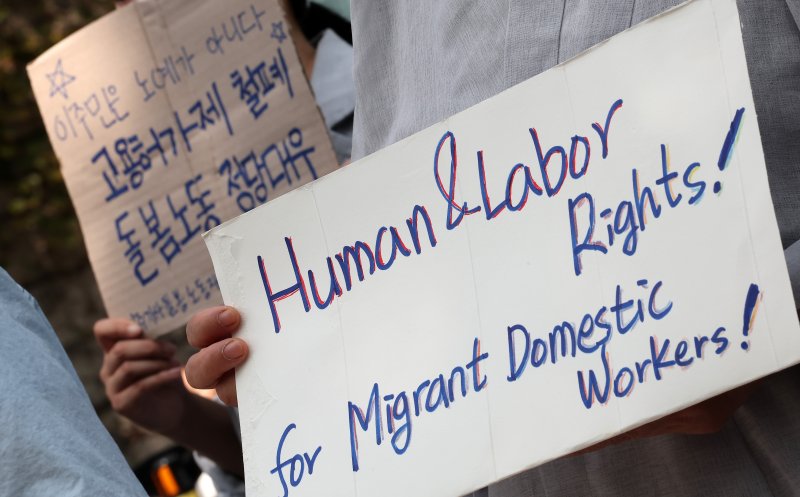 이주민은 노예가 아니다
고용허가제 철폐
돌봄노동 정당대우
Human & Labor
Rights!
for Migrant Domestic
Workers!